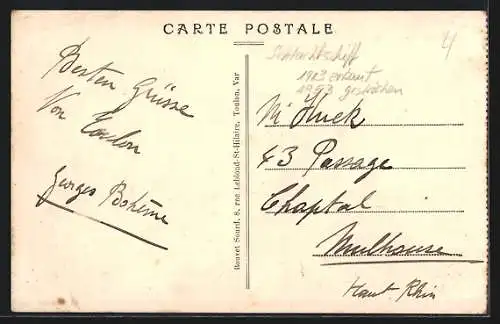 CARTE POSTALE
Besten Grüsse
Von Toulon
Georges Bohème
Bouvet Sourd, 8, rue Leblond-St-Hilaire, Toulon, Var
Schlachtschiff
1913 erbaut
1953 gestrichen
4
Mr Huck
43 Passage
Chaptal
Mulhouse
Haut-Rhin